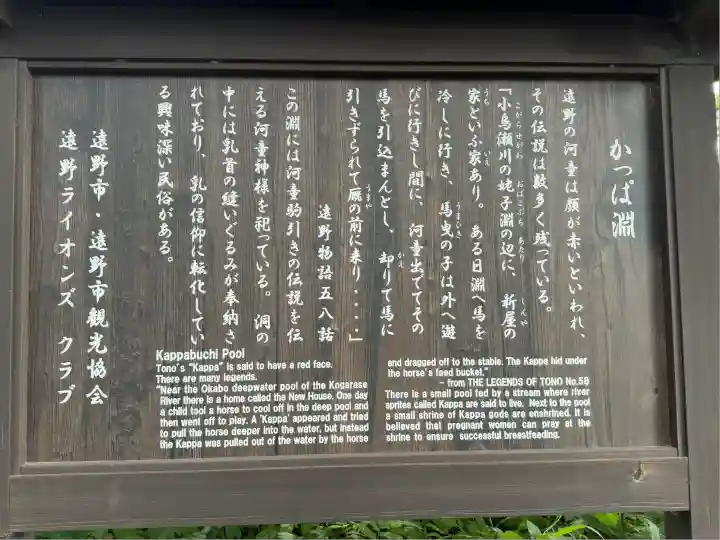 かっぱ淵
遠野の河童は顔が赤いといわれ、
その伝説は数多く残っている。
「小烏瀬川の姥子淵の辺に、新屋の
家といふ家あり。ある日淵へ馬を
冷しに行き、馬曳の子は外へ遊
びに行きし間に、河童出でてその
馬を引込まんとし、却りて馬に
引きずられて厩の前に来り・・・・」
遠野物語五八話
この淵には河童駒引きの伝説を伝
える河童神様を祀っている。洞の
中には乳首の縫いぐるみが奉納さ
れており、乳の信仰に転化してい
る興味深い民俗がある。
遠野市・遠野市観光協会
遠野ライオンズ クラブ
Kappabuchi Pool
Tono's "Kappa" is said to have a red face.
There are many legends.
"Near the Okabo deepwater pool of the Kogarase
River there is a home called the New House. One day
a child tool a horse to cool off in the deep pool and
then went off to play. A 'Kappa' appeared and tried
to pull the horse deeper into the water, but instead
the Kappa was pulled out of the water by the horse
and dragged off to the stable. The Kappa hid under
the horse's feed bucket."
– from THE LEGENDS OF TONO No.58
There is a small pool fed by a stream where river
sprites called Kappa are said to live. Next to the pool
a small shrine of Kappa gods are enshrined. It is
believed that pregnant women can pray at the
shrine to ensure successful breastfeeding.